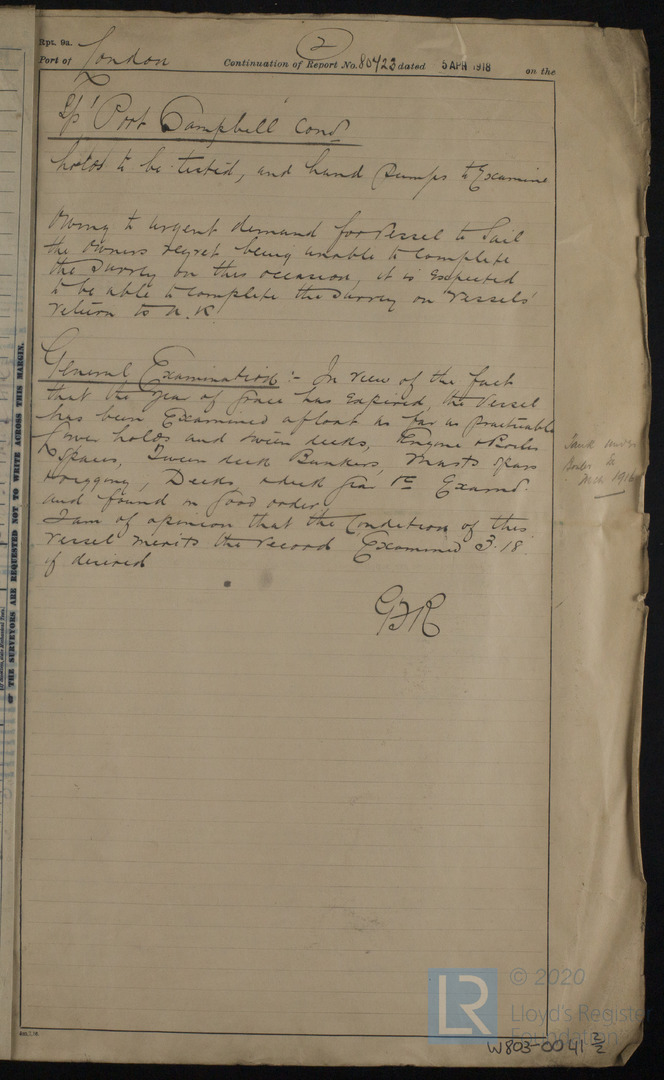 Rpt. 9a.
2
Port of London Continuation of Report No. 80423 dated 5 APR 1918 on the
"Port Campbell" Cond
holds to be tested, and hand pumps to Examine
Owing to urgent demand for Vessel to Sail
the Owners regret being unable to complete
the Survey on this occasion, it is expected
to be able to complete the Survey on Vessels'
return to U.K.
General Examination :- In view of the fact
that the year of grace has expired, the Vessel
has been Examined afloat as far as practicable
Lower holds and tween decks, Engine & Boiler
Spaces, Tween deck Bunkers, Masts Spars
rigging, Decks, Examd.
and found in good order.
I am of opinion that the Condition of this
vessel merits the record Examined 3.18.
if desired
GFR
Tank under
Boiler
Mch 1916
THE SURVEYORS ARE REQUESTED NOT TO WRITE ACROSS THIS MARGIN.
LR
© 2020
Lloyd's Register
Foundation
W803-0041 2/2